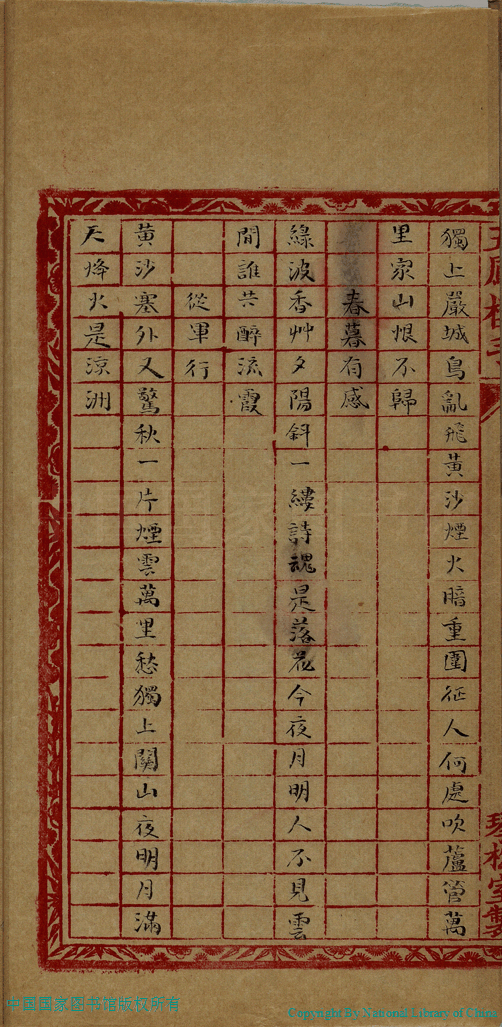 獨上嚴城鳥亂飛黃沙煙火暗重圍征人何處吹蘆管萬
里家山恨不歸
春暮有感
綠波香艸夕陽斜一縷詩魂是落花今夜月明人不見雲
間誰共醉流霞
從軍行
黃沙塞外又驚秋一片煙雲萬里愁獨上關山夜明月滿
天烽火是涼洲
中国国家图书馆版权所有
Copyright By National Library of China